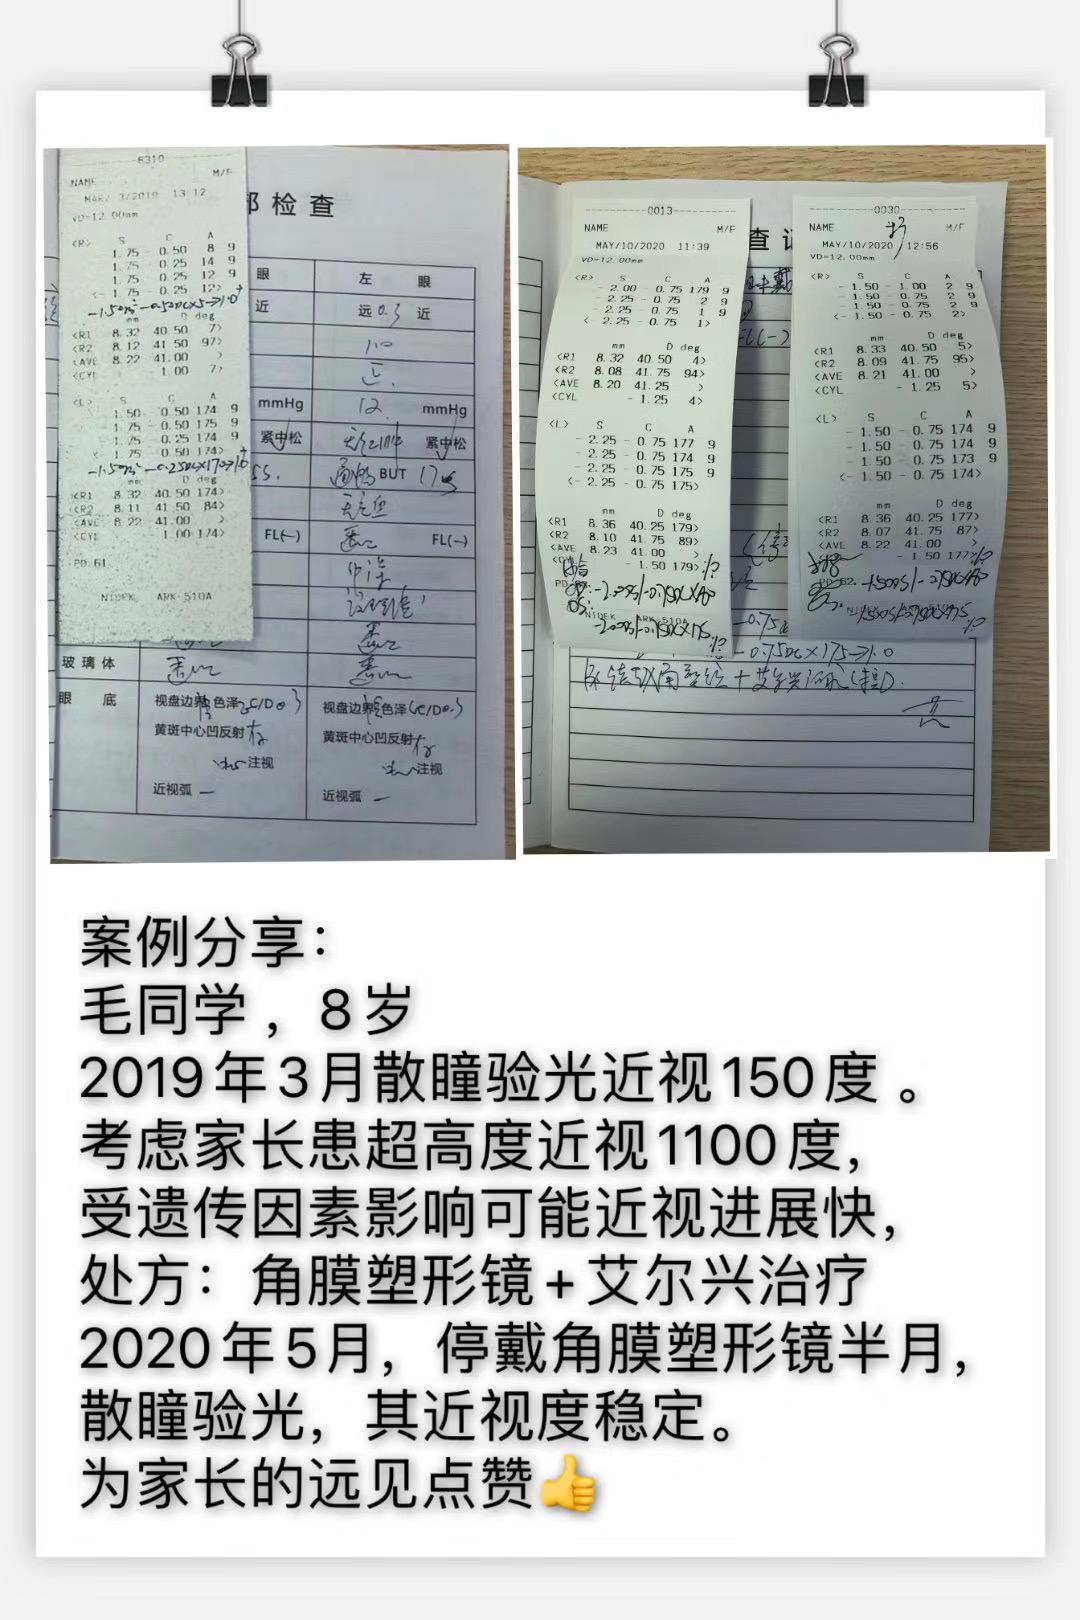 6310
NAME M/F
MAR/ 3/2019 13 12
VD=12.00mm
<R> S C A
1.75 - 0.50 8 9
1.75 0.25 14 9
1.75 0.25 12 9
<- 1.75 - 0.25 12>
mm D deg
<R1 8.32 40.50 7>
<R2 8.12 41.50 97>
<AVE 8.22 41.00 >
<CYL - 1.00 7>
<L> S C A
1.50 0.50 174 9
1.75 0.50 175 9
1.75 0.25 174 9
1.75 0.50 174>
D deg
<R1 8.32 40.50 174>
<R2 8.11 41.50 84>
<AVE 8.22 41.00 >
<CYL 1.00 174>
PD 61
NIDEK ARK-510A
部检查
眼 左 眼
近 远 0.3 近
mmHg 12 mmHg
紧中松 紧中松
BUT
FL(-) FL(-)
玻璃体
眼 底 视盘边界 色泽 C/D 0.3 视盘边界 色泽 C/D 0.3
黄斑中心凹反射 黄斑中心凹反射
注视 注视
近视弧 — 近视弧 —
0013
NAME M/F
MAY/10/2020 11:39
VD=12.00mm
<R> S C A
- 2.00 - 0.75 179 9
- 2.25 - 0.75 2 9
- 2.25 - 0.75 1 9
<- 2.25 - 0.75 1>
mm D deg
<R1 8.32 40.50 4>
<R2 8.08 41.75 94>
<AVE 8.20 41.25 >
<CYL - 1.25 4>
<L> S C A
- 2.25 - 0.75 177 9
- 2.25 - 0.75 174 9
- 2.25 - 0.75 175 9
<- 2.25 - 0.75 175>
mm D deg
<R1 8.36 40.25 179>
<R2 8.10 41.75 89>
<AVE 8.23 41.00 >
- 1.50 179>
NIDEK ARK-510A
查
0030
NAME M/F
MAY/10/2020 12:56
VD=12.00mm
<R> S C A
- 1.50 - 1.00 2 9
- 1.50 - 0.75 2 9
- 1.50 - 0.75 2 9
<- 1.50 - 0.75 2>
mm D deg
<R1 8.33 40.50 5>
<R2 8.09 41.75 95>
<AVE 8.21 41.00 >
<CYL - 1.25 5>
<L> S C A
- 1.50 - 0.75 174 9
- 1.50 - 0.75 174 9
- 1.50 - 0.75 173 9
- 1.50 - 0.75 174>
mm D deg
<R1 8.36 40.25 177>
<R2 8.07 41.75 87>
<AVE 8.22 41.00 >
- 1.50 177>
-0.75DC×175→1.0
案例分享：
毛同学 ，8岁
2019年3月散瞳验光近视150度 。
考虑家长患超高度近视1100度，
受遗传因素影响可能近视进展快，
处方：角膜塑形镜+艾尔兴治疗
2020年5月，停戴角膜塑形镜半月，
散瞳验光，其近视度稳定。
为家长的远见点赞👍